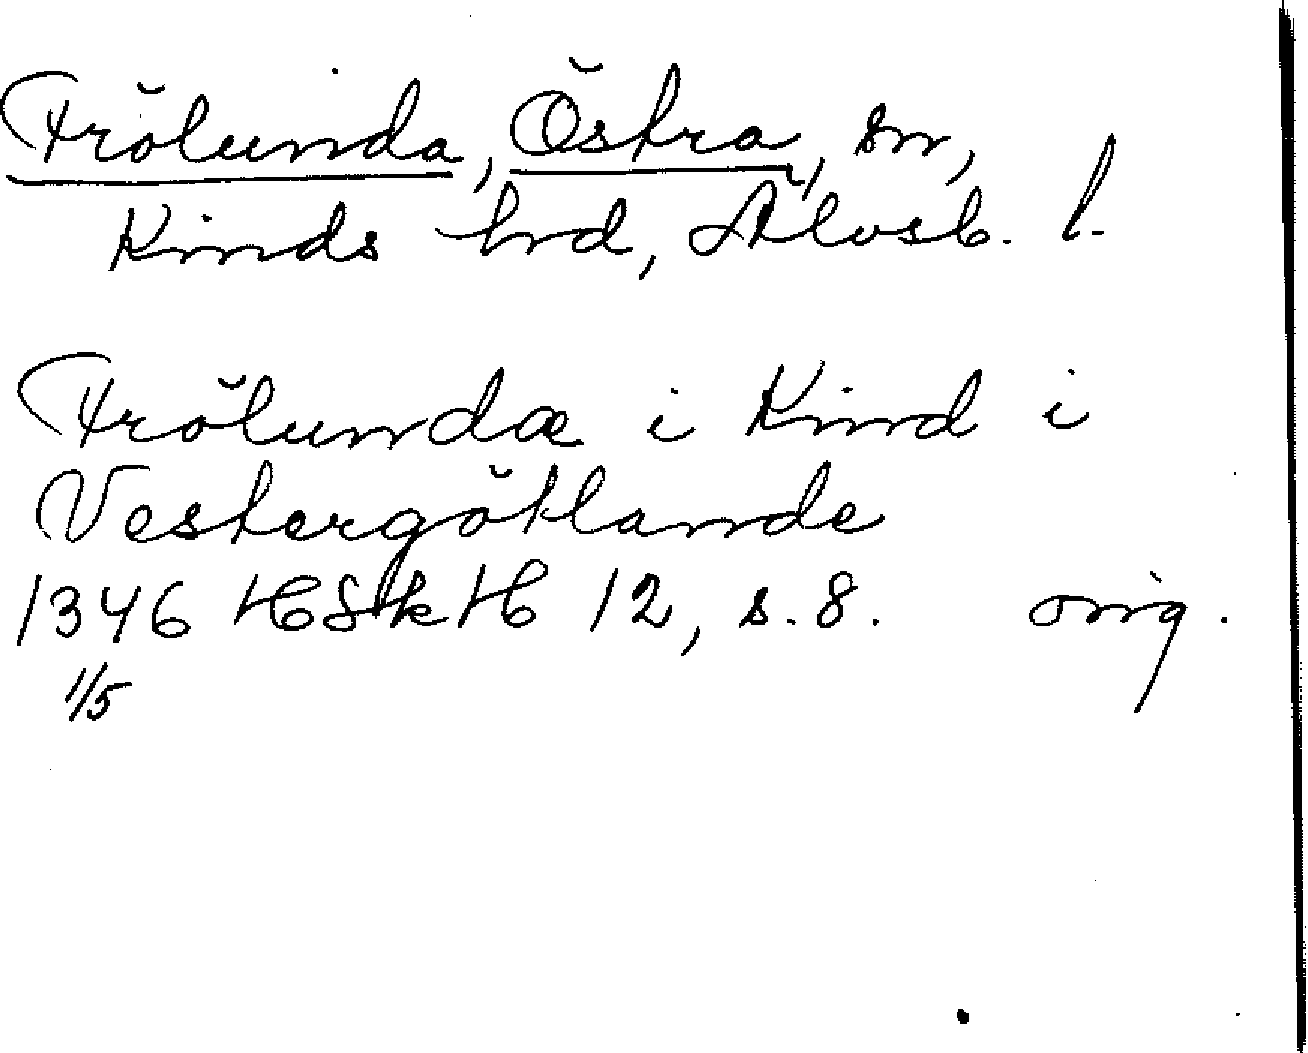 Frölunda, Östra, sn,
Kinds hrd, Älvsb. l.
Frölundæ i Kind i
Vestergötlande
1346 HSkH 12, s. 8. orig.
1/5